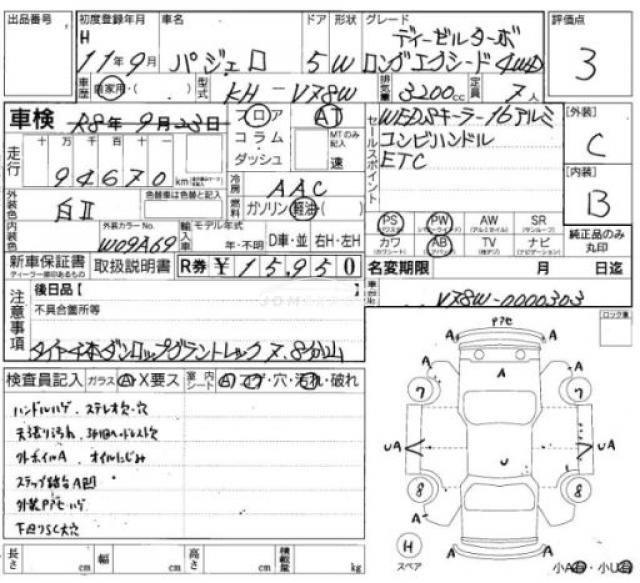 出品番号
初度登録年月 車名 ドア 形状 グレード 評価点
H 11年 9月 パジェロ 5 W ディーゼルターボ
ロングエクシード4WD 3
車歴 自家用・( ) 型式 KH-V78W 排気量 3200cc 定員 7人
車検 R8年 9月 23日 フロア AT
コラム MTのみ記入
ダッシュ 速
セールスポイント WEDSキーラー16アルミ
コンビハンドル
ETC
[外装] C
[内装] B
走行 十 万 千 百 十 一
94670 km
冷房 AAC
外装色 白II 色替車は色替と記入
燃料 ガソリン・軽油( )
内装色 外装カラーNo. W09A69
輸入車 モデル年式 年・不明 D車・並 右H・左H
PS PW AW SR
カワ AB TV ナビ
純正品のみ丸印
新車保証書
ディーラー捺印あるもの
取扱説明書 R券 ¥15,950
名変期限 月 日迄
注意事項 後日品【 】
不具合箇所等
V78W-0000303
タイヤ4本ダンロップグラントレック 7.8分山
ロック車
検査員記入 ガラス A・X要ス 室内シート A コゲ・穴・汚れ・破れ
ハンドルハゲ . ステレオ穴・穴
天張り汚れ
外ホイルA オイルにじみ
ステップ踏台A凹
外装Pアセハゲ
下回りSC大穴
Pアセ
A A
A A A
7 7
UA U UA
8 8
A A
A A
H
スペア
小A有・小U有
長さ cm 幅 cm 高さ cm 積載量 kg